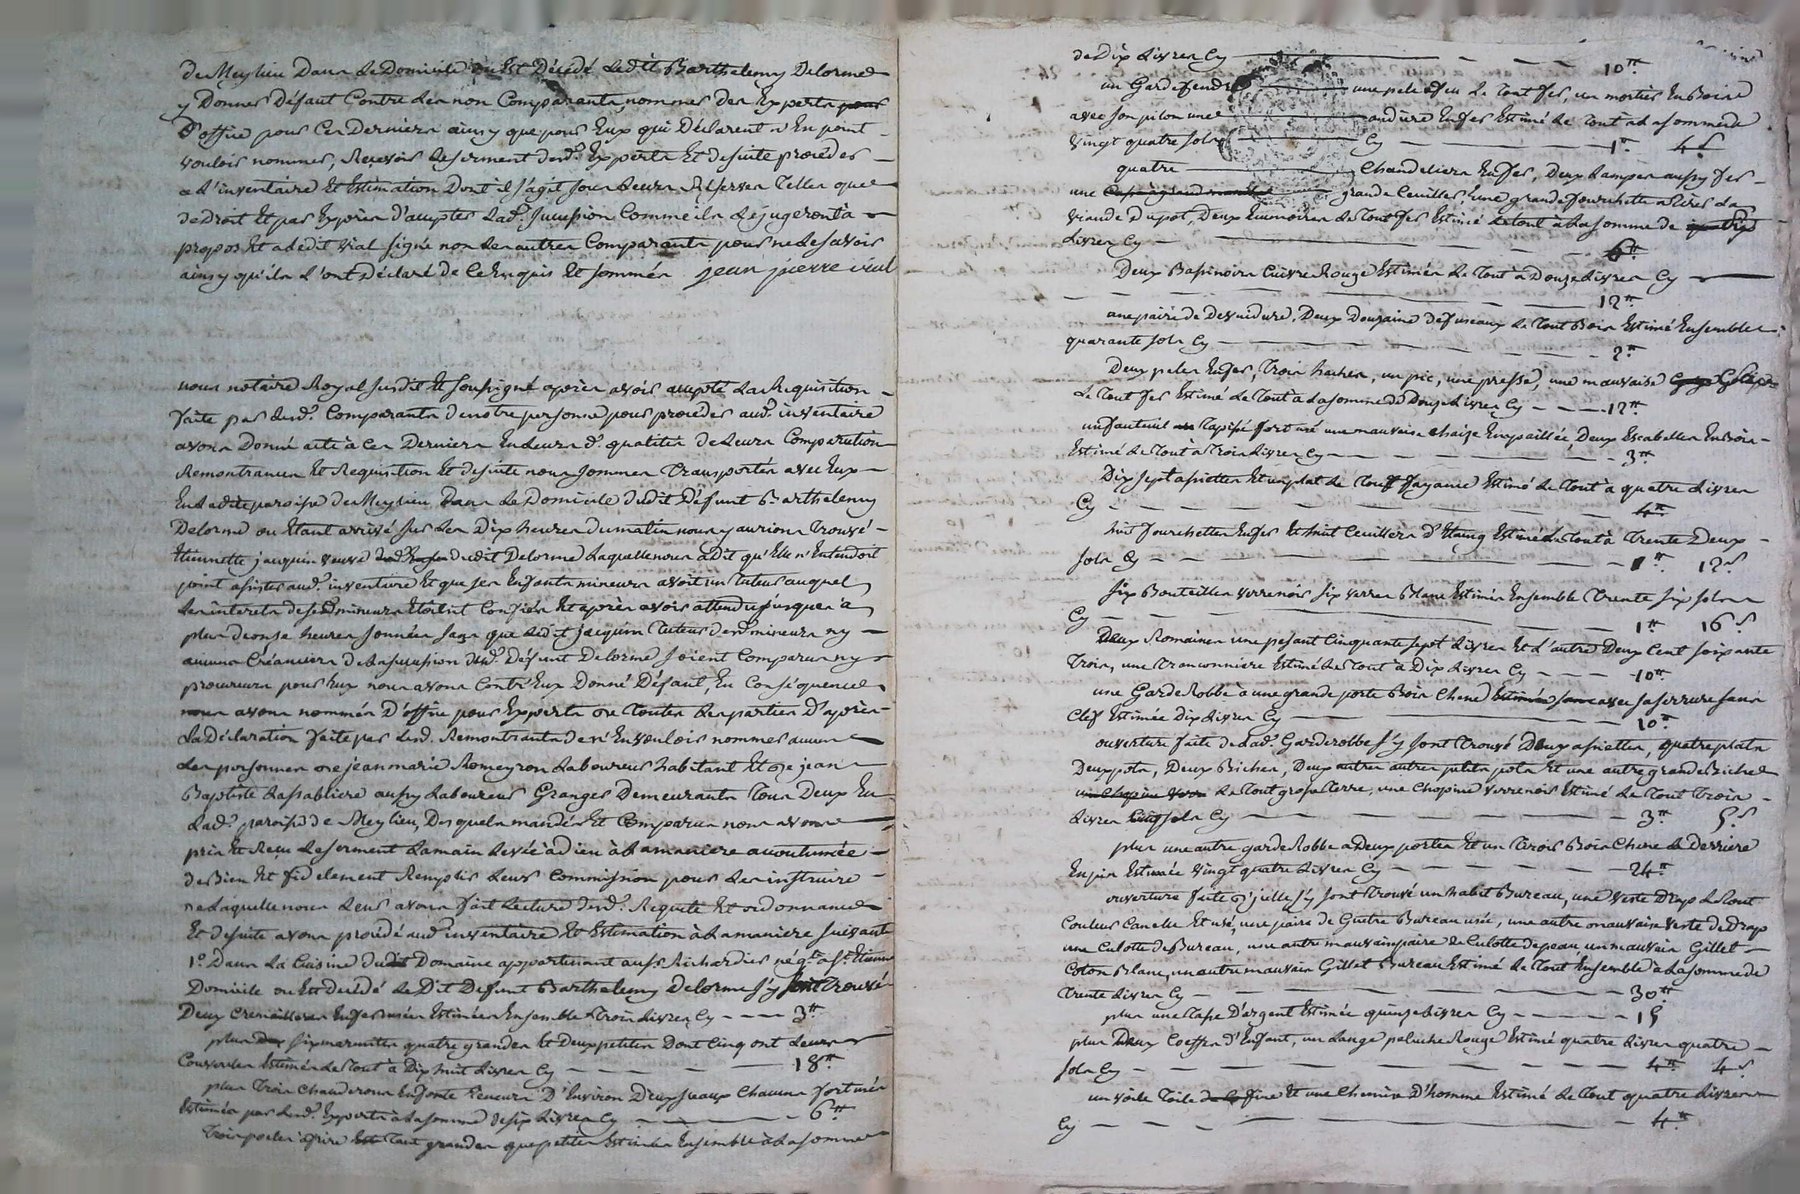 de Meylieu Dans Le Domicile ou Est Décédé Ledit Barthelemy Delorme
y Donner Défaut Contre Les non Comparants, nommer des Experts pour
D'office pour Ces Derniers ainsy que pour Eux qui Déclarent n'En point
vouloir nommer, Recevoir Le serment desd. Experts Et de suite proceder
a L'inventaire Et Estimation Dont il s'agit sous Leurs Reserves Telles que
de droit Et pas Exprès d'accepter Lad. succession Comme ils Le jugeront à
propos Et a Ledit vial signé non Les autres Comparants pour ne Le savoir
ainsy qu'ils L'ont Déclaré de Ce Enquis Et sommés jean pierre vial
nous notaire Royal susdit Et soussigné après avoir accepté La Requisition
faite par Lesd. Comparants de notre personne pour proceder aud. inventaire
avons Donné acte à Ces Derniers En Leurs d. qualités de Leurs Comparution
Remontrances Et Requisition Et de suite nous sommes Transportés avec Eux
En Ladite paroisse de Meylieu Dans Le Domicile dudit Défunt Barthelemy
Delorme ou Etant arrivé sur Les Dix heures du matin nous y aurions Trouvé
Etiennette jacquin veuve dudit Delorme Laquelle nous a dit qu'Elle n'Entendoit
point assister aud. inventaire Et que ses Enfants mineurs avoit un tuteur auquel
Les interets desd. mineurs Etoient Confiés Et après avoir attendu jusques à
plus de onse heures sonnées sans que Ledit jacquin tuteur desd. mineurs ny
aucuns Créanciers de La succession dud. Défunt Delorme soient Comparus ny
procureurs pour Eux nous avons Contr'Eux Donné Défaut, En Conséquence
nous avons nommés D'office pour Experts de Toutes Les parties D'après
La Déclaration faite par Lesd. Remontrants de n'En vouloir nommer aucuns
Les personnes de jean marie Romeyron Laboureur habitant Et de jean
Baptiste Lasabliere aussy Laboureur Granger Demeurants Tous Deux En
Lad. paroisse de Meylieu, Desquels mandés Et Comparus nous avons
pris Et Reçu Le serment La main Levée à dieu à La maniere accoutumée
de Bien Et fidelement Remplir Leur Commission pour Les instruire
de Laquelle nous Leur avons fait Lecture desd. Requete Et ordonnance
Et de suite avons procédé aud. inventaire Et Estimation à La maniere suivante
1° Dans La Cuisine dudit Domaine appartenant au sr. Richardier neg.t a St. Etienne
Domicile ou Est Décédé Le Dit Defunt Barthelemy Delorme s'y sont Trouvé
Deux Cremailleres En fer usées Estimées Ensemble Trois Livres Cy 3tt
plus six marmittes quatre grandes Et Deux petites Dont Cinq ont Leurs
Couvercles Estimées Le Tout à Dix huit Livres Cy 18tt
plus Trois Chauderons En fonte D'Environ Deux seaux Chacun fort usés
Estimés par Lesd. Experts à La somme de six Livres Cy 6tt
Trois poeles à frire Tant grandes que petites Estimées Ensemble à La somme
de Dix Livres Cy 10tt
un Gardefendre une pele à feu Le Tout fer, un mortier En Bois
avec son pilon une En fer Estimé Le Tout a La somme de
vingt quatre sols Cy 1tt 4s
quatre Chandeliers En fer, Deux Lampes aussy fer
une grande Ceuiller, une grande fourchette a Tirer La
viande Du pot, Deux Ecumoires Le Tout fer Estimé Le tout à La somme de
Livres Cy 6tt
Deux Bassinoires Cuivre Rouge Estimées Le Tout à Douze Livres Cy
12tt
une paire de Devuidure, Deux Douzaine de fuseaux Le Tout Bois Estimé Ensemble
quarante sols Cy 2tt
Deux peles En fer, Trois haches, un pic, une presse, une mauvaise
Le Tout fer Estimé Le Tout à La somme de Douze Livres Cy 12tt
un fauteuil Tapissé fort usé une mauvaise Chaize Empaillée, Deux Escabelles En Bois
Estimé Le Tout à Trois Livres Cy 3tt
Dix sept assiettes Et un plat Le Tout fayance Estimé Le Tout a quatre Livres
Cy 4tt
huit fourchettes En fer Et huit Ceuillers d'Etaing Estimé Le Tout à Trente Deux
sols Cy 1tt 12s
six Bouteilles verrenoir six verres Blanc Estimés Ensemble Trente six sols
Cy 1tt 16s
Deux Romaines une pesant Cinquante sept Livres Et L'autre Deux Cent soixante
Trois, une Tranconniere Estimé Le Tout à Dix Livres Cy 10tt
une Garde Robbe à une grande porte Bois Chene avec sa serrure sans
Clef Estimée Dix Livres Cy 10tt
ouverture faite de Lad. Garderobbe s'y sont Trouvé Deux assiettes, quatre plats
Deux pots, Deux Biches, Deux autres petits pots Et une autre grande Biche
Le Tout grosse Terre, une Chopine verrenoir Estimé Le Tout Trois
Livres Cinq sols Cy 3tt 5s
plus une autre garde Robbe a Deux portes Et un Tiroir Bois Chene Le Derriere
En pin Estimée vingt quatre Livres Cy 24tt
ouverture faite d'jcelle s'y sont Trouvé un habit Bureau, une veste Drap Le Tout
Couleur Canelle Et usé, une paire de Guetre Bureau usée, une autre mauvaise veste de Drap
une Culotte de Bureau, une autre mauvaise paire de Culotte de peau un mauvais Gillet
Coton Blanc, un autre mauvais Gillet Bureau Estimé Le Tout Ensemble à La somme de
Trente Livres Cy 30tt
plus une Tasse D'argent Estimée quinze Livres Cy 15
plus Deux Coeffes d'Enfant, un Lange peluche Rouge Estimé quatre Livres quatre
sols Cy 4tt 4s
un voile Toile fine Et une Chemise D'homme Estimé Le Tout quatre Livres
Cy 4tt